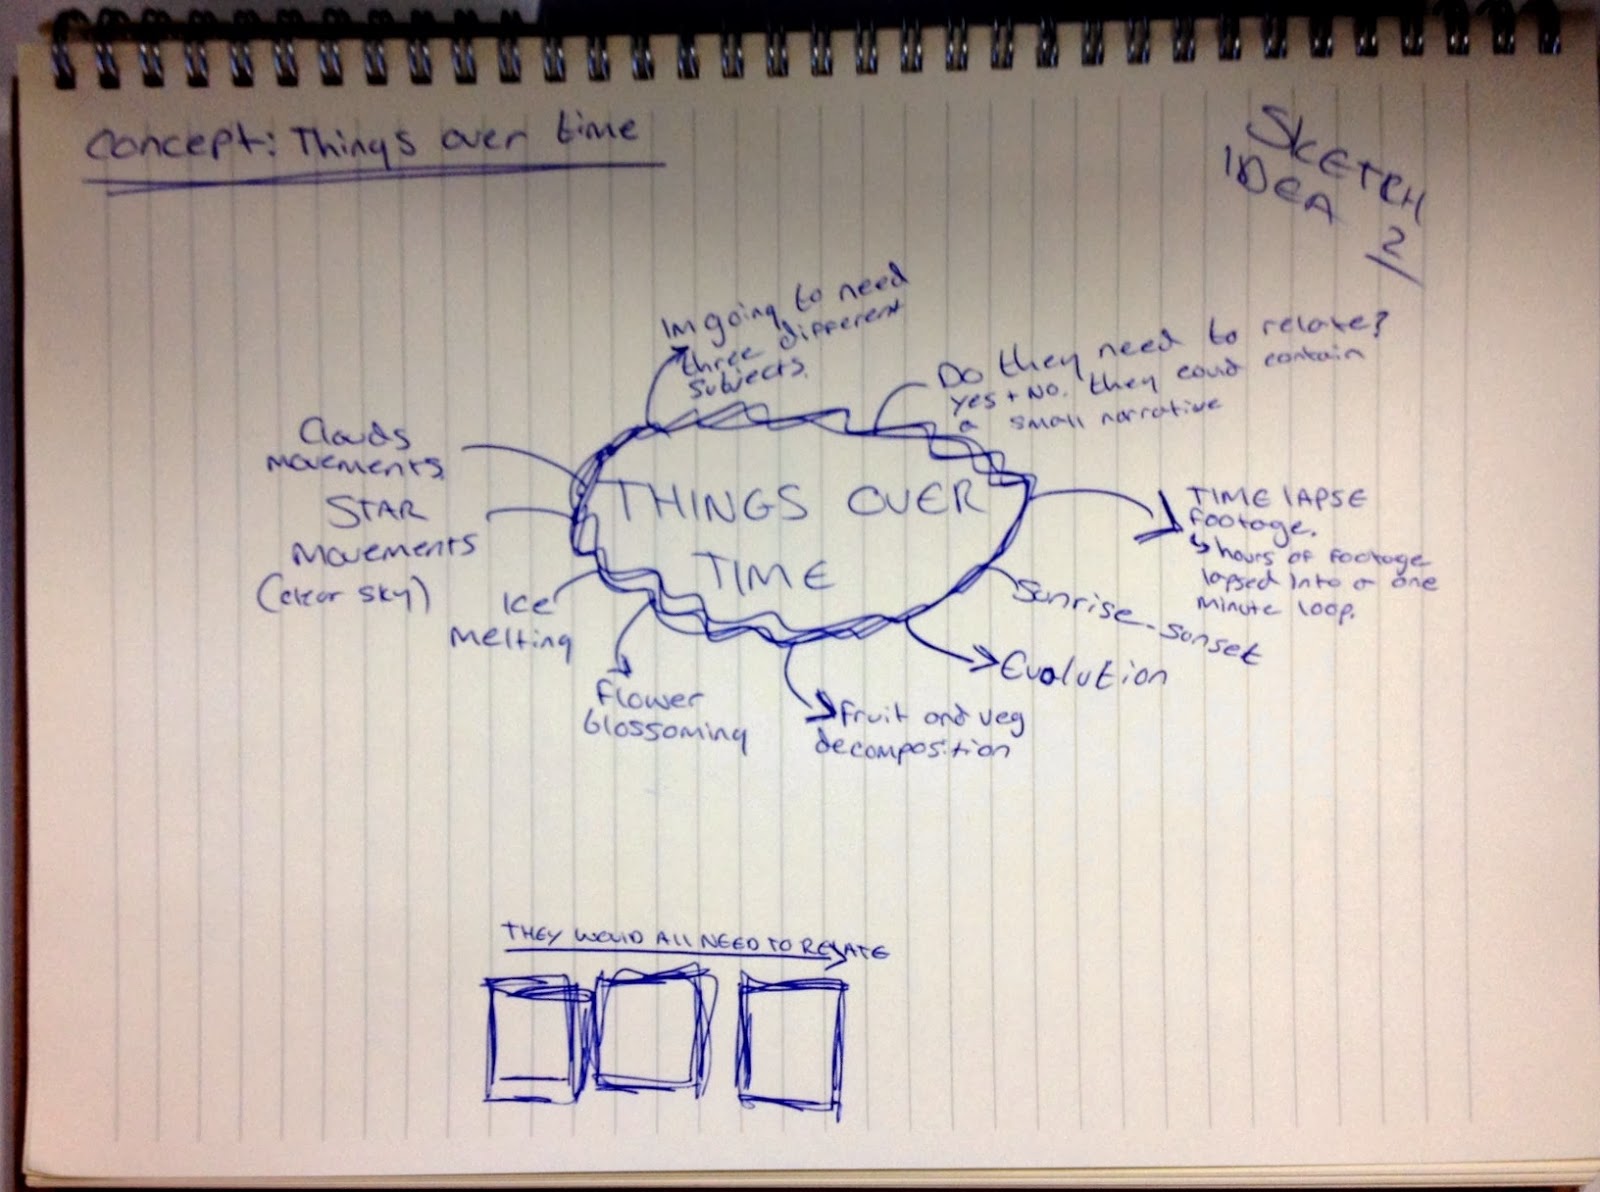 Concept: Things over time
SKETCH
IDEA
2
Im going to need
three different
subjects.
Do they need to relate?
yes + No. they could contain
a small narrative
Clouds
movements
STAR
movements
(clear sky)
THINGS OVER
TIME
TIME lAPSE
footage.
↳ hours of footage
lapsed into a one
minute loop.
Ice
melting
Sunrise - sunset
Evolution
Flower
blossoming
fruit and veg
decomposition
THEY WOULD All NEED TO RELATE